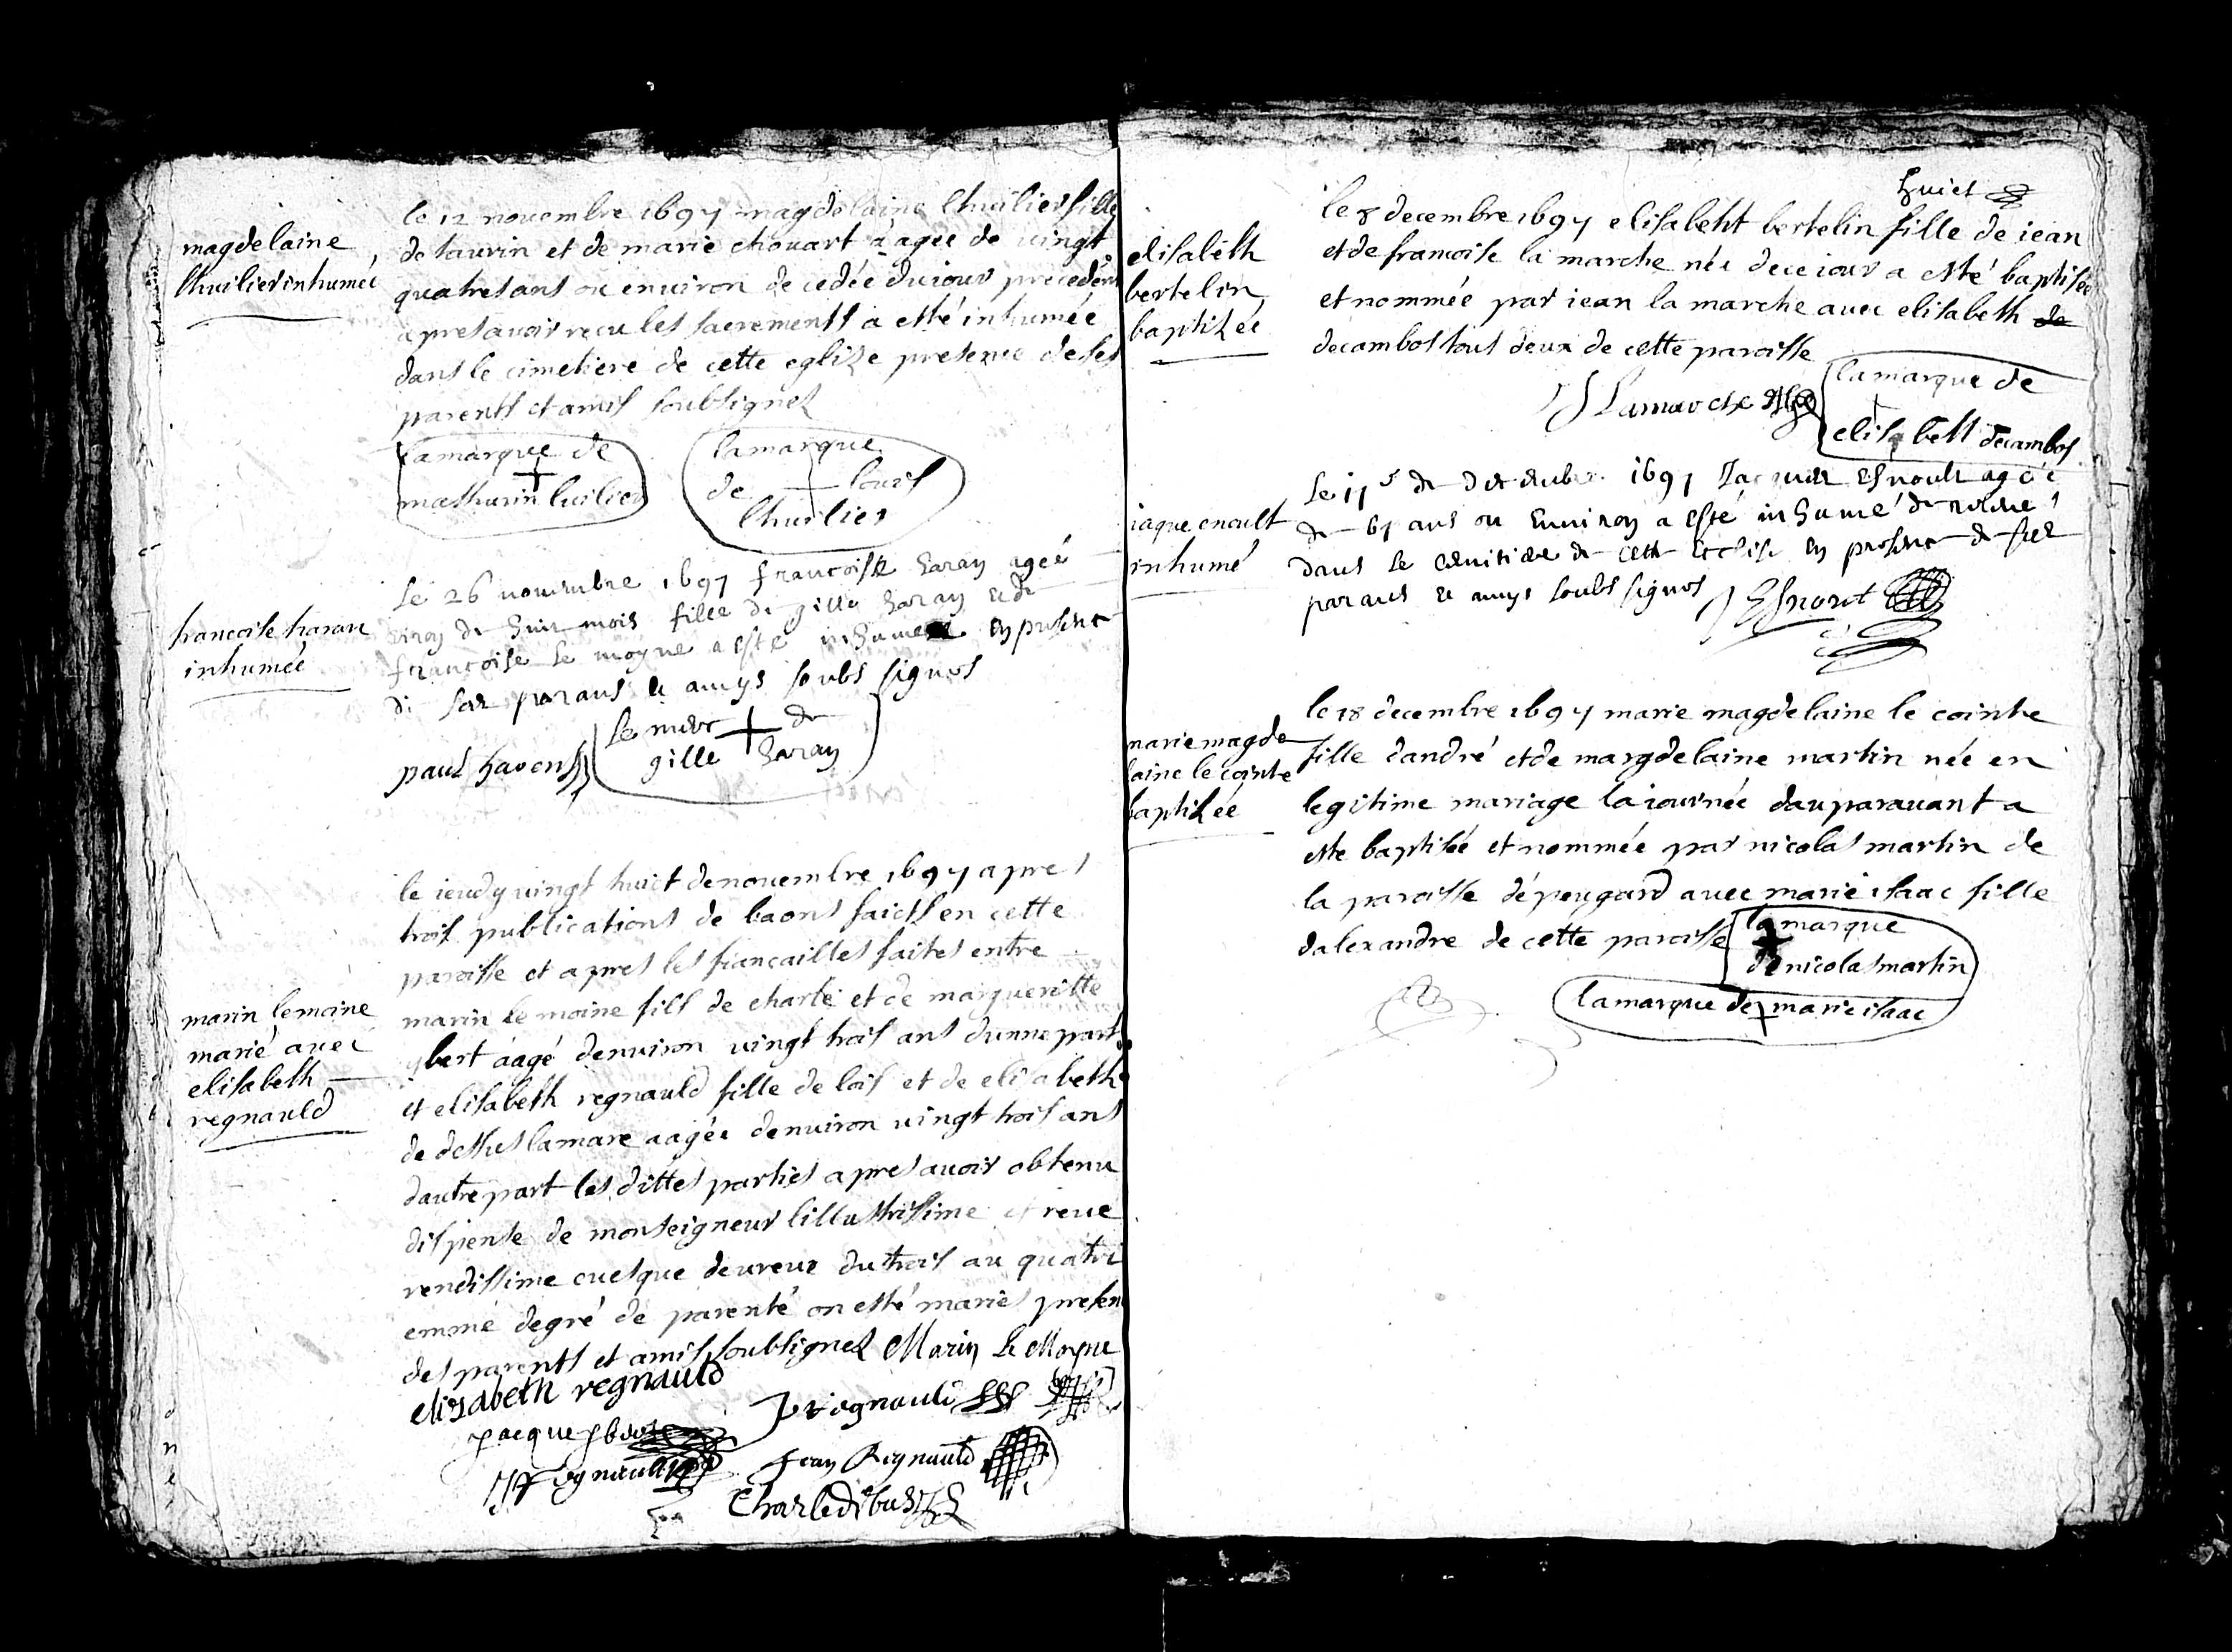 magdelaine
lhuilier inhumée
le 12 novembre 1697 magdelaine lhuilier fille
de taurin et de marie chouart aagee de vingt
quatre ans ou environ decedée du iour precedent
apres avoir receu les sacrements a esté inhumée
dans le cimetiere de cette eglize presence de ses
parents et amis soubsignez
la marque de
mathurin luilier
la marque
de louis
lhuilier
francoise haran
inhumée
Le 26 novembre 1697 francoisse haran ageé
viron de huit mois fille de gille haran et de
francoise le moyne a esté inhumee en presence
de ses parans et amys soubs signes
paul haren
Le merc de
gille haran
marin lemoine
marié avec
elisabeth
regnauld
le ieudy vingt huict de novembre 1697 apres
trois publications de baons faicts en cette
paroisse et apres les fiancailles faites entre
marin le moine fils de charle et de margueritte
ybert aagé denviron vingt trois ans dunne part
et elisabeth regnauld fille de lois et de elisabeth
de dessus lamare aagée denviron vingt trois ans
dautre part les dittes parties apres avoir obtenu
dispense de monseigneur lillustrissime et reve
rendissime evesque devreux du trois au quatri
emme degré de parenté on esté mariés presen
des parents et amis soubsignez Marin Le Moyne
elizabeth regnauld
J regnauld
jacque ybert
regnauld
jean Regnauld
elisabeth
bertelin
baptizée
huict
le 8 decembre 1697 elisabeht bertelin fille de iean
et de francoise la marche née de ce iour a esté baptisée
et nommée par iean la marche avec elisabeth de
decambos tous deux de cette paroisse
J Lamarche
la marque de
elisabett decambos
iaque enoult
inhumé
Le 17e de decembre 1697 Jacques Esnoult agéé
de 67 ans ou environ a esté inhumé
dans le cemitiere de cette eccelise en presence de ses
parans et amys soubs signes
J Esnout
marie magde
laine le cointe
baptizée
le 18 decembre 1697 marie magdelaine le cointe
fille dandré et de margdelaine martin née en
legitime mariage la iournée dauparavant a
este baptisée et nommée par nicolas martin de
la paroisse dépengard avec marie isaac fille
dalexandre de cette paroisse
la marque
de nicolas martin
la marque de marie isaac